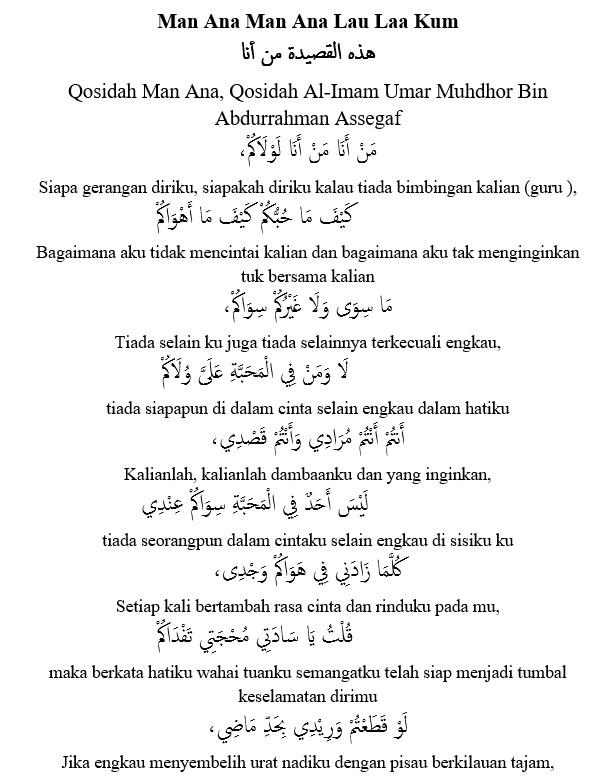 Man Ana Man Ana Lau Laa Kum
هذه القصيدة من أنا
Qosidah Man Ana, Qosidah Al-Imam Umar Muhdhor Bin
Abdurrahman Assegaf
مَنْ أَنَا مَنْ أَنَا لَوْلَاكُمْ،
Siapa gerangan diriku, siapakah diriku kalau tiada bimbingan kalian (guru ),
كَيْفَ مَا حُبُّكُمْ كَيْفَ مَا أَهْوَاكُمْ
Bagaimana aku tidak mencintai kalian dan bagaimana aku tak menginginkan
tuk bersama kalian
مَا سِوَى وَلَا غَيْرُكُمْ سِوَاكُمْ،
Tiada selain ku juga tiada selainnya terkecuali engkau,
لَا وَمَنْ فِي الْمَحَبَّةِ عَلَىَّ وُلَاكُمْ
tiada siapapun di dalam cinta selain engkau dalam hatiku
أَنْتُمْ أَنْتُمْ مُرَادِي وَأَنْتُمْ قَصْدِي،
Kalianlah, kalianlah dambaanku dan yang inginkan,
لَيْسَ أَحَدٌ فِي الْمَحَبَّةِ سِوَاكُمْ عِنْدِي
tiada seorangpun dalam cintaku selain engkau di sisiku ku
كُلَّمَا زَادَنِي فِي هَوَاكُمْ وَجْدِى،
Setiap kali bertambah rasa cinta dan rinduku pada mu,
قُلْتُ يَا سَادَتِي مُحْجَتِي تَفْدَاكُمْ
maka berkata hatiku wahai tuanku semangatku telah siap menjadi tumbal
keselamatan dirimu
لَوْ قَطَعْتُمْ وَرِيْدِي بِحَدِّ مَاضِي،
Jika engkau menyembelih urat nadiku dengan pisau berkilauan tajam,